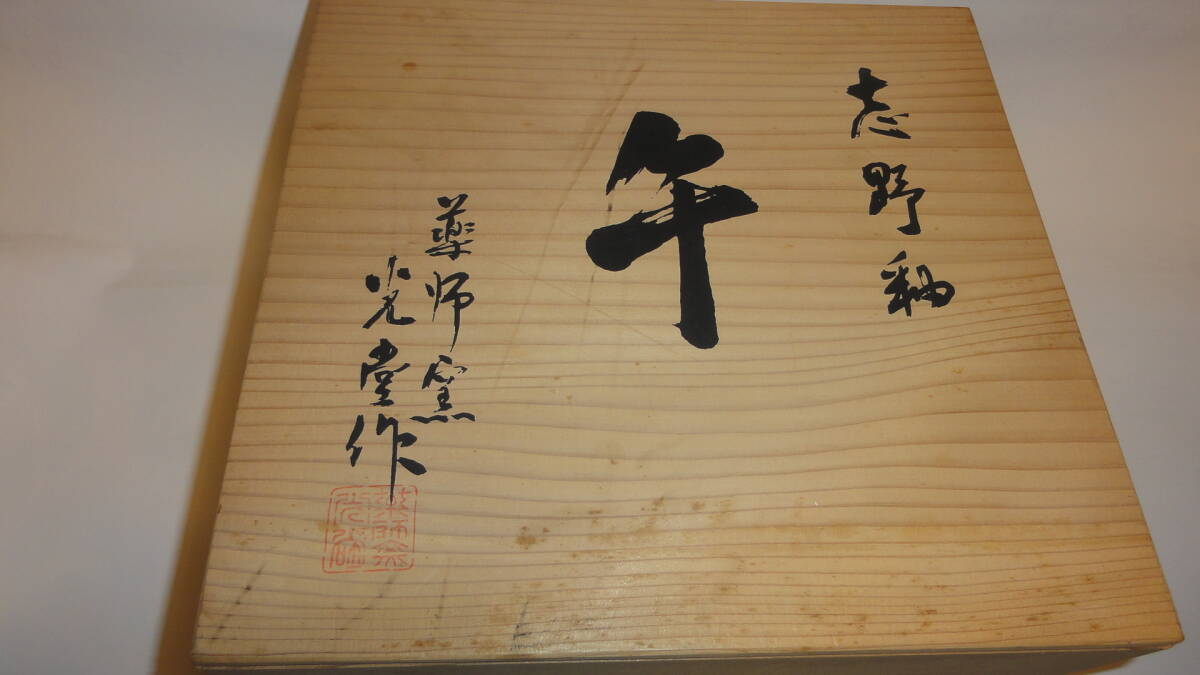 志野釉
午
薬師窯
光堂作